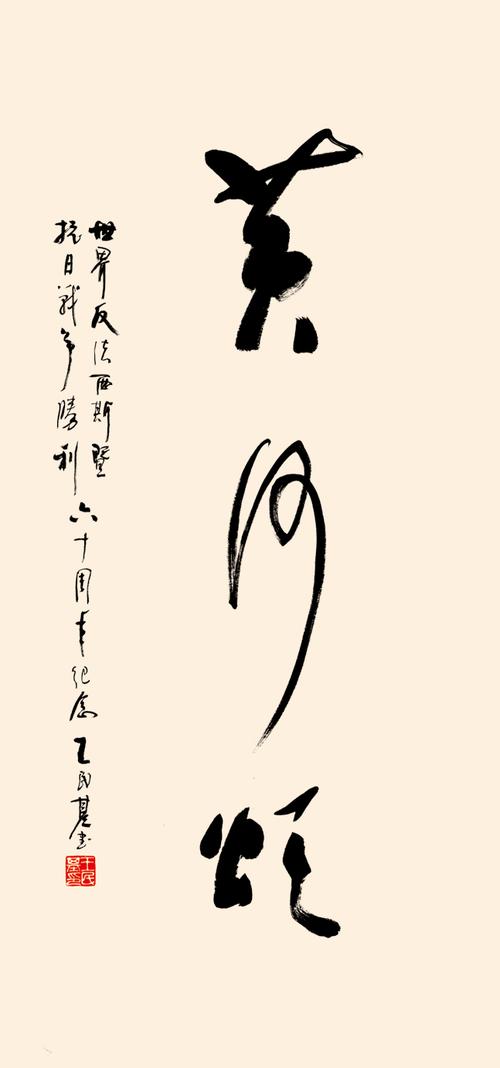 黄河颂
世界反法西斯暨
抗日战争勝利
六十周年纪念 王民基书
王民基印